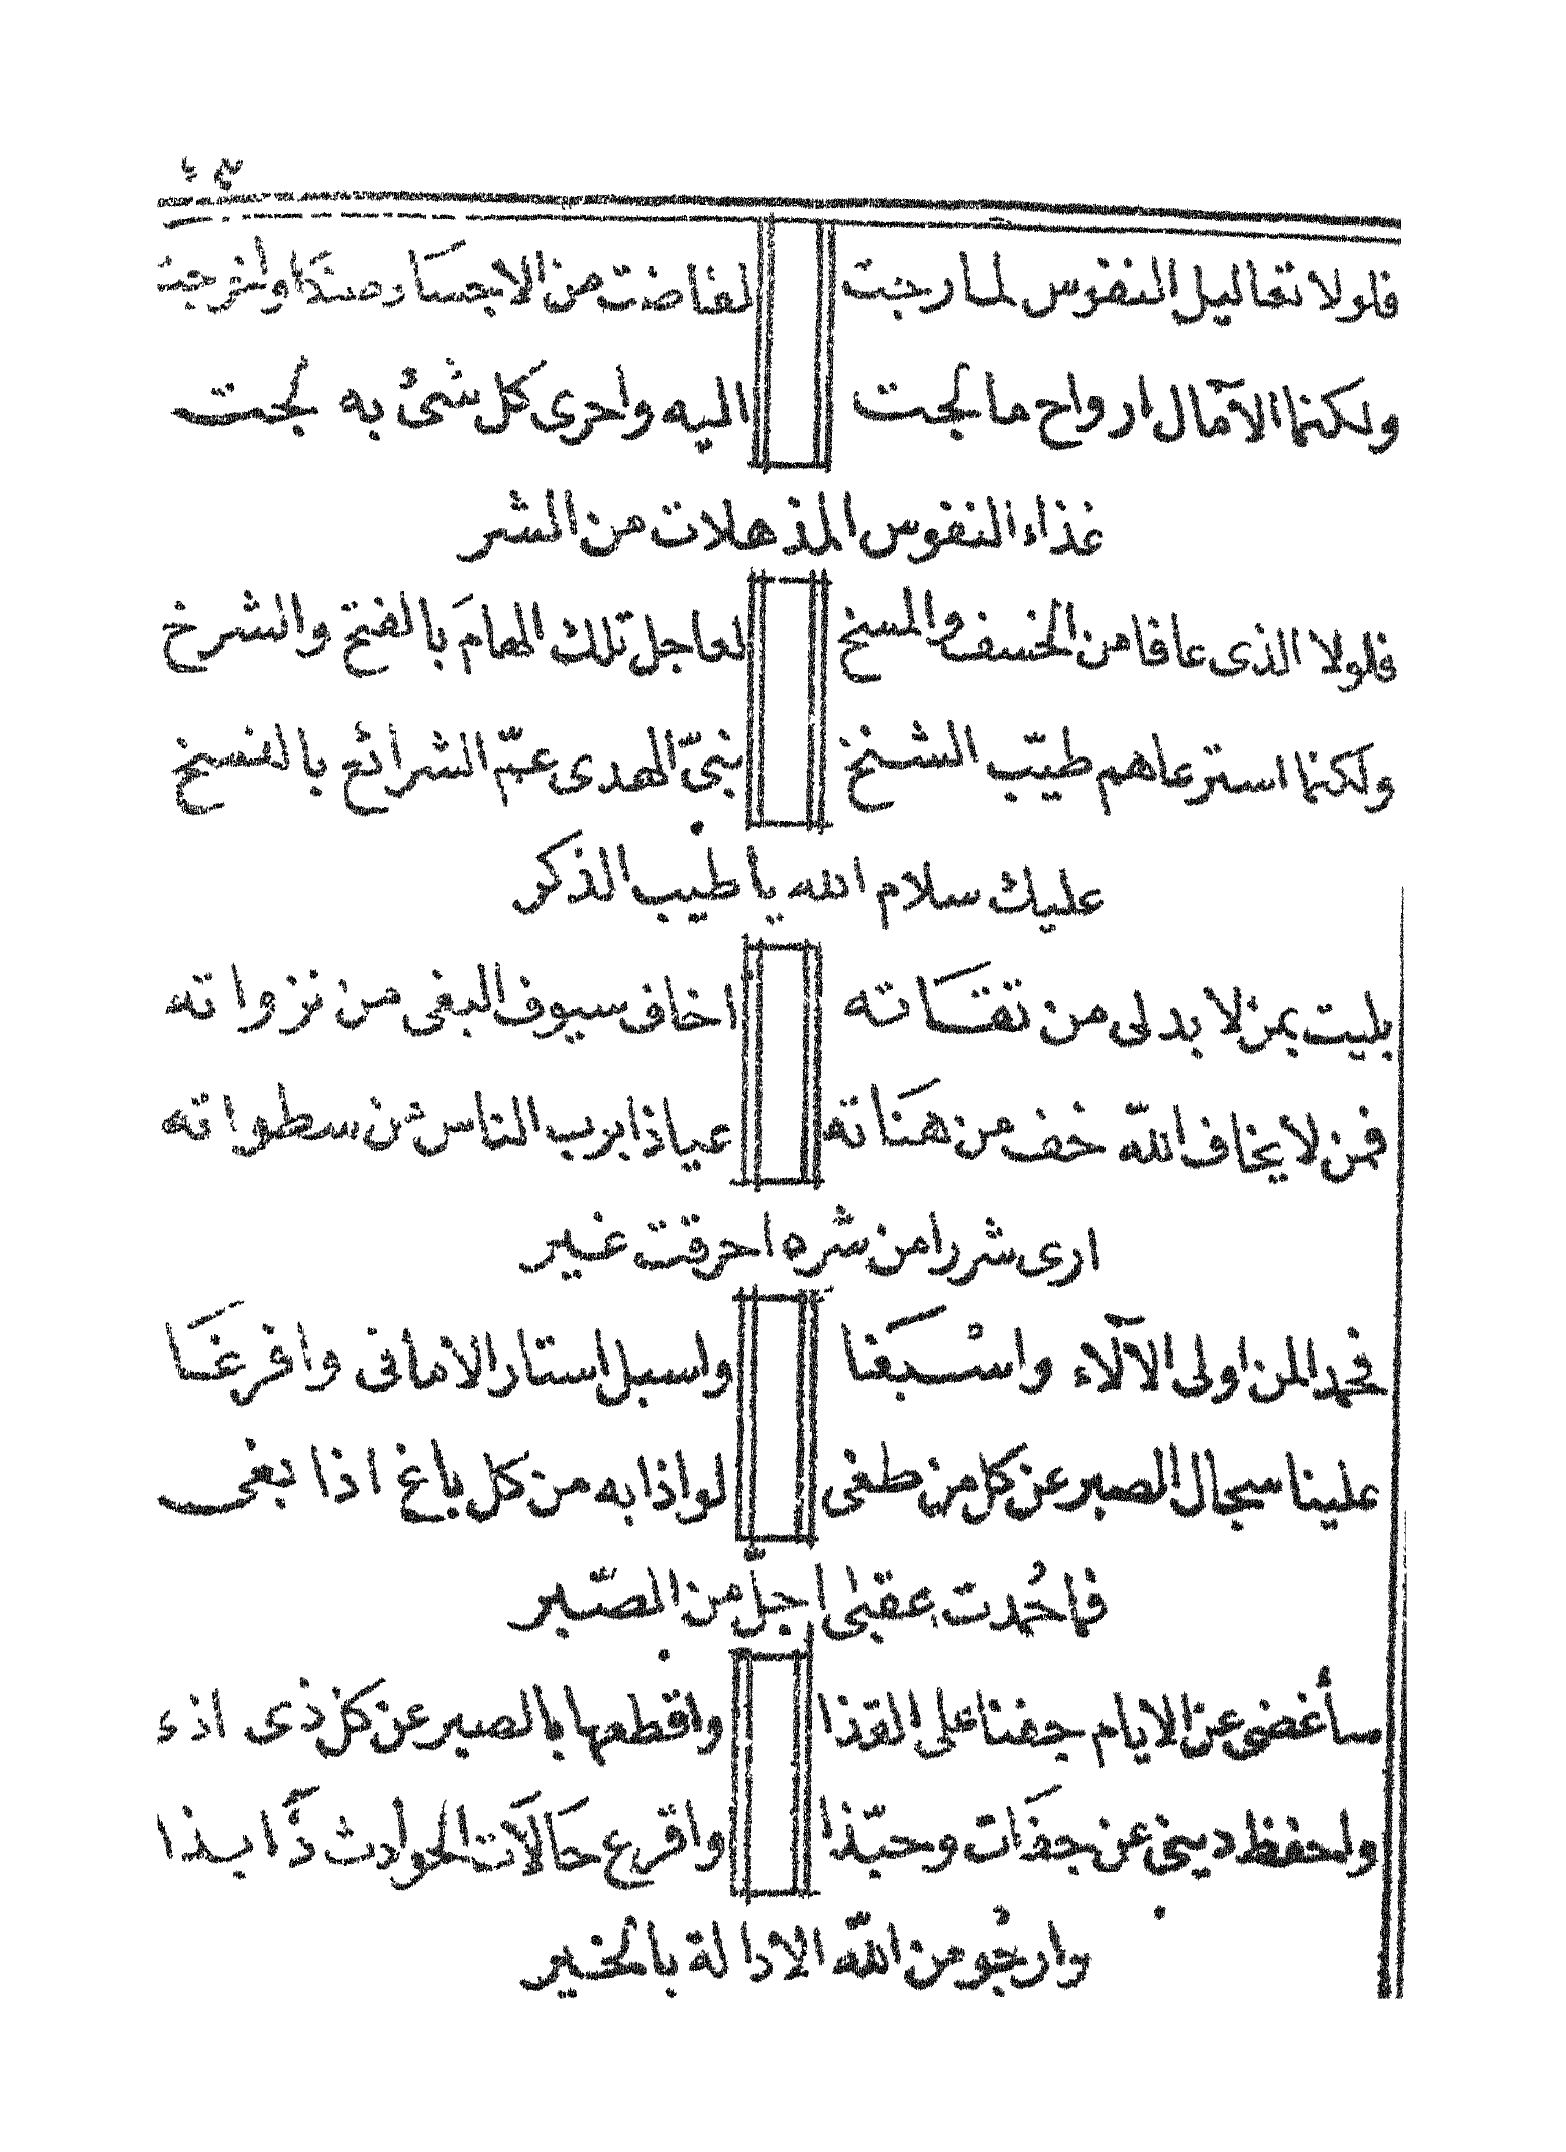 فلولا تعاليل النفوس لما رجت لفاضت من الاجساد
ولكنما الآمال ارواح ما لجت اليه واحرى كل شئ به لجت
غذاء النفوس المذهلات من الشر
فلولا الذى عافا من الخسف والمسخ لعاجل تلك الهام بالفتخ والشرخ
ولكنما استرعاهم طيّب الشنخ نبىّ الهدى عمّ الشرائع بالفسخ
عليك سلام الله يا طيب الذكر
بليت بمن لا بد لى من تقاته اخاف سيوف البغى من نزواته
فمن لا يخاف الله خف من هناته عياذا برب الناس من سطواته
ارى شررا من شره احرقت غير
فحمد المن اولى الآلاء واسبغا واسبل استار الامانى وافرغا
علينا سجال الصبر عن كل من طغى لواذا به من كل باغ اذا بغى
فما حُمدت عقبى اجلّ من الصّبر
سأغضى عن الايام جفنا على القذا واقطعها بالصبر عن كل ذى اذء
ولحفظ دينى عن جفات وحبّذا واقرع حالات الحوادث ذا بذا
وارجُو من الله الادالة بالخير